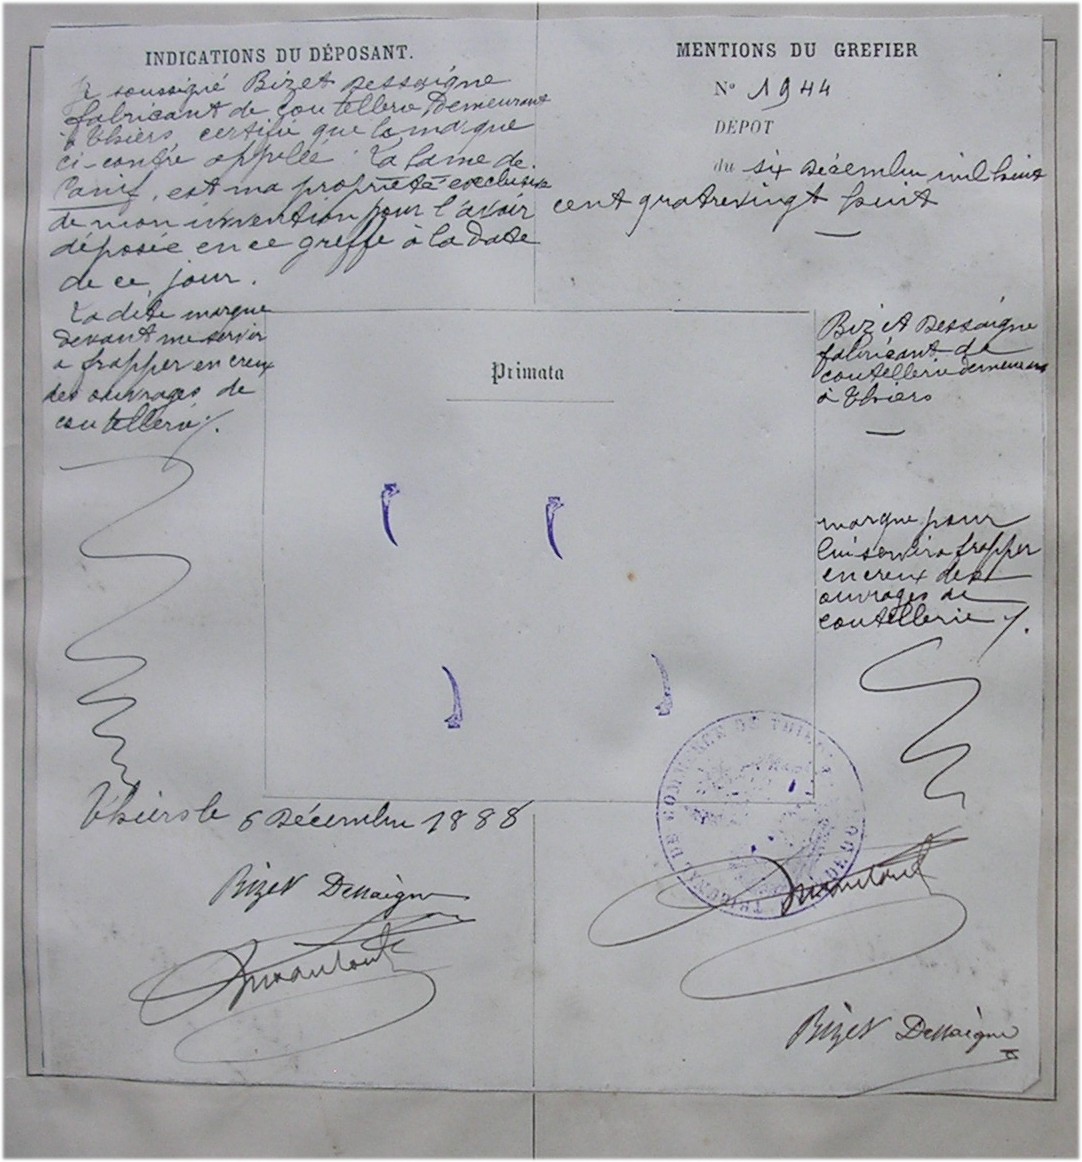 INDICATIONS DU DÉPOSANT.
Je soussigné Bizet Dessaigne
fabricant de coutellerie Demeurant
à Thiers certifie que la marque
ci-contre appellée La lame de
Canif, est ma propriété exclusive
de mon invention pour l'avoir
déposée en ce greffe à la date
de ce jour.
La dite marque
devant me servir
a frapper en creux
des ouvrages de
coutellerie
MENTIONS DU GREFIER
N° 1944
DÉPOT
du six Décembre mil huit
cent qratrevingt huit
Bizet Dessaigne
fabricant de
coutellerie demeurant
à Thiers
marque pour
lui servir a frapper
en creux des
ouvrages de
coutellerie
Primata
Thiers le 6 Décembre 1888
Bizet Dessaigne
TRIBUNAL DE COMMERCE DE THIERS
Bizet Dessaigne